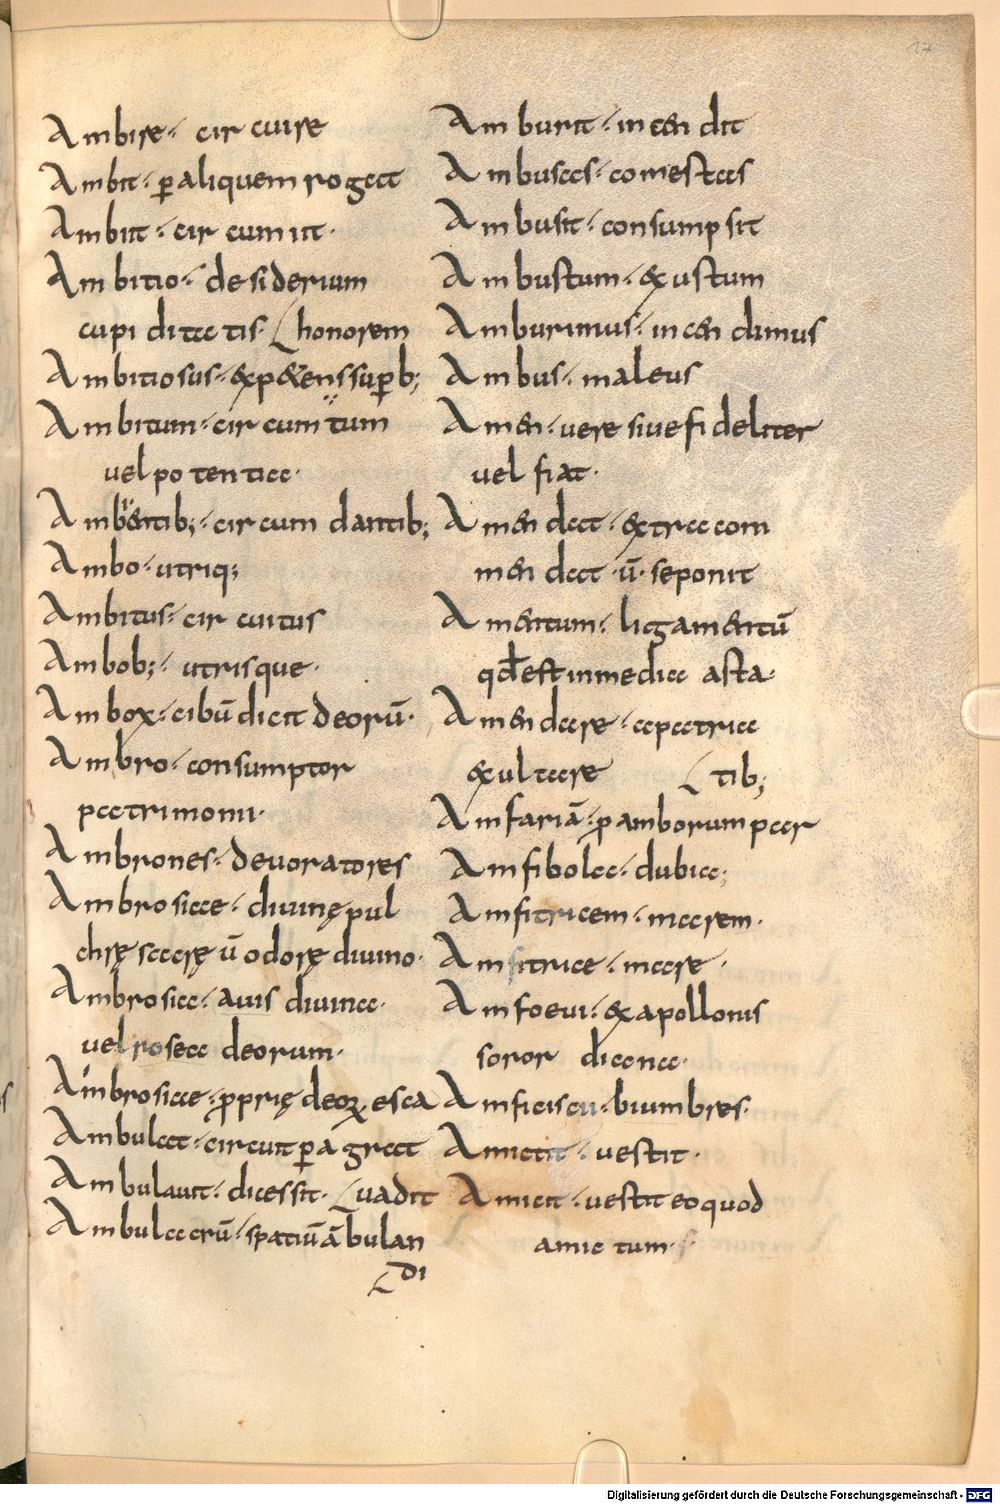 17
Ambire· circuire
Ambit· ꝑ aliquem rogat
Ambit· circumit·
Ambitio· desiderium
cupiditatis· honorem
Ambitiosus· &p&ens suꝑb;
Ambitum· circumitum
vel potentia·
Ambientib;· circumdantib;
Ambo· utriq;
Ambitus· circuitus
Ambob;· utrisque·
Ambox· cibū dicit deorū·
Ambro· consumptor
patrimonii·
Ambrones· devoratores
Ambrosiae· divinę pul
chrę sacrę ū odorę divino·
Ambrosia· avis divina·
vel rosea deorum·
Ambrosiae· ꝓprię deoꝝ esca
Ambulat· circuit ꝑagrat
Ambulavit· dicessit· vadit
Ambulacrū· spatiū ābulan
di
Amburit· incendit
Ambusas· comestas
Ambusit· consumpsit
Ambustum· &ustum
Amburimus· incendimus
Ambus· maleus
Amen· vere sive fideliter
vel fiat·
Amendat· extra com
mendat ·ū· seponit
Amentum· ligamentū
qđ est in media asta·
Amendare· a patria
exultare tib;
Amfariā· ꝓ amborum par
Amfibola· dubia;
Amfitricem· marem·
Amfitrice· mare·
Amfoevi· & apollonis
soror dicence·
Amficiscu· biumbres·
Amictit· vestit·
Amicit· vestit eo quod
amictum·
Digitalisierung gefördert durch die Deutsche Forschungsgemeinschaft - DFG